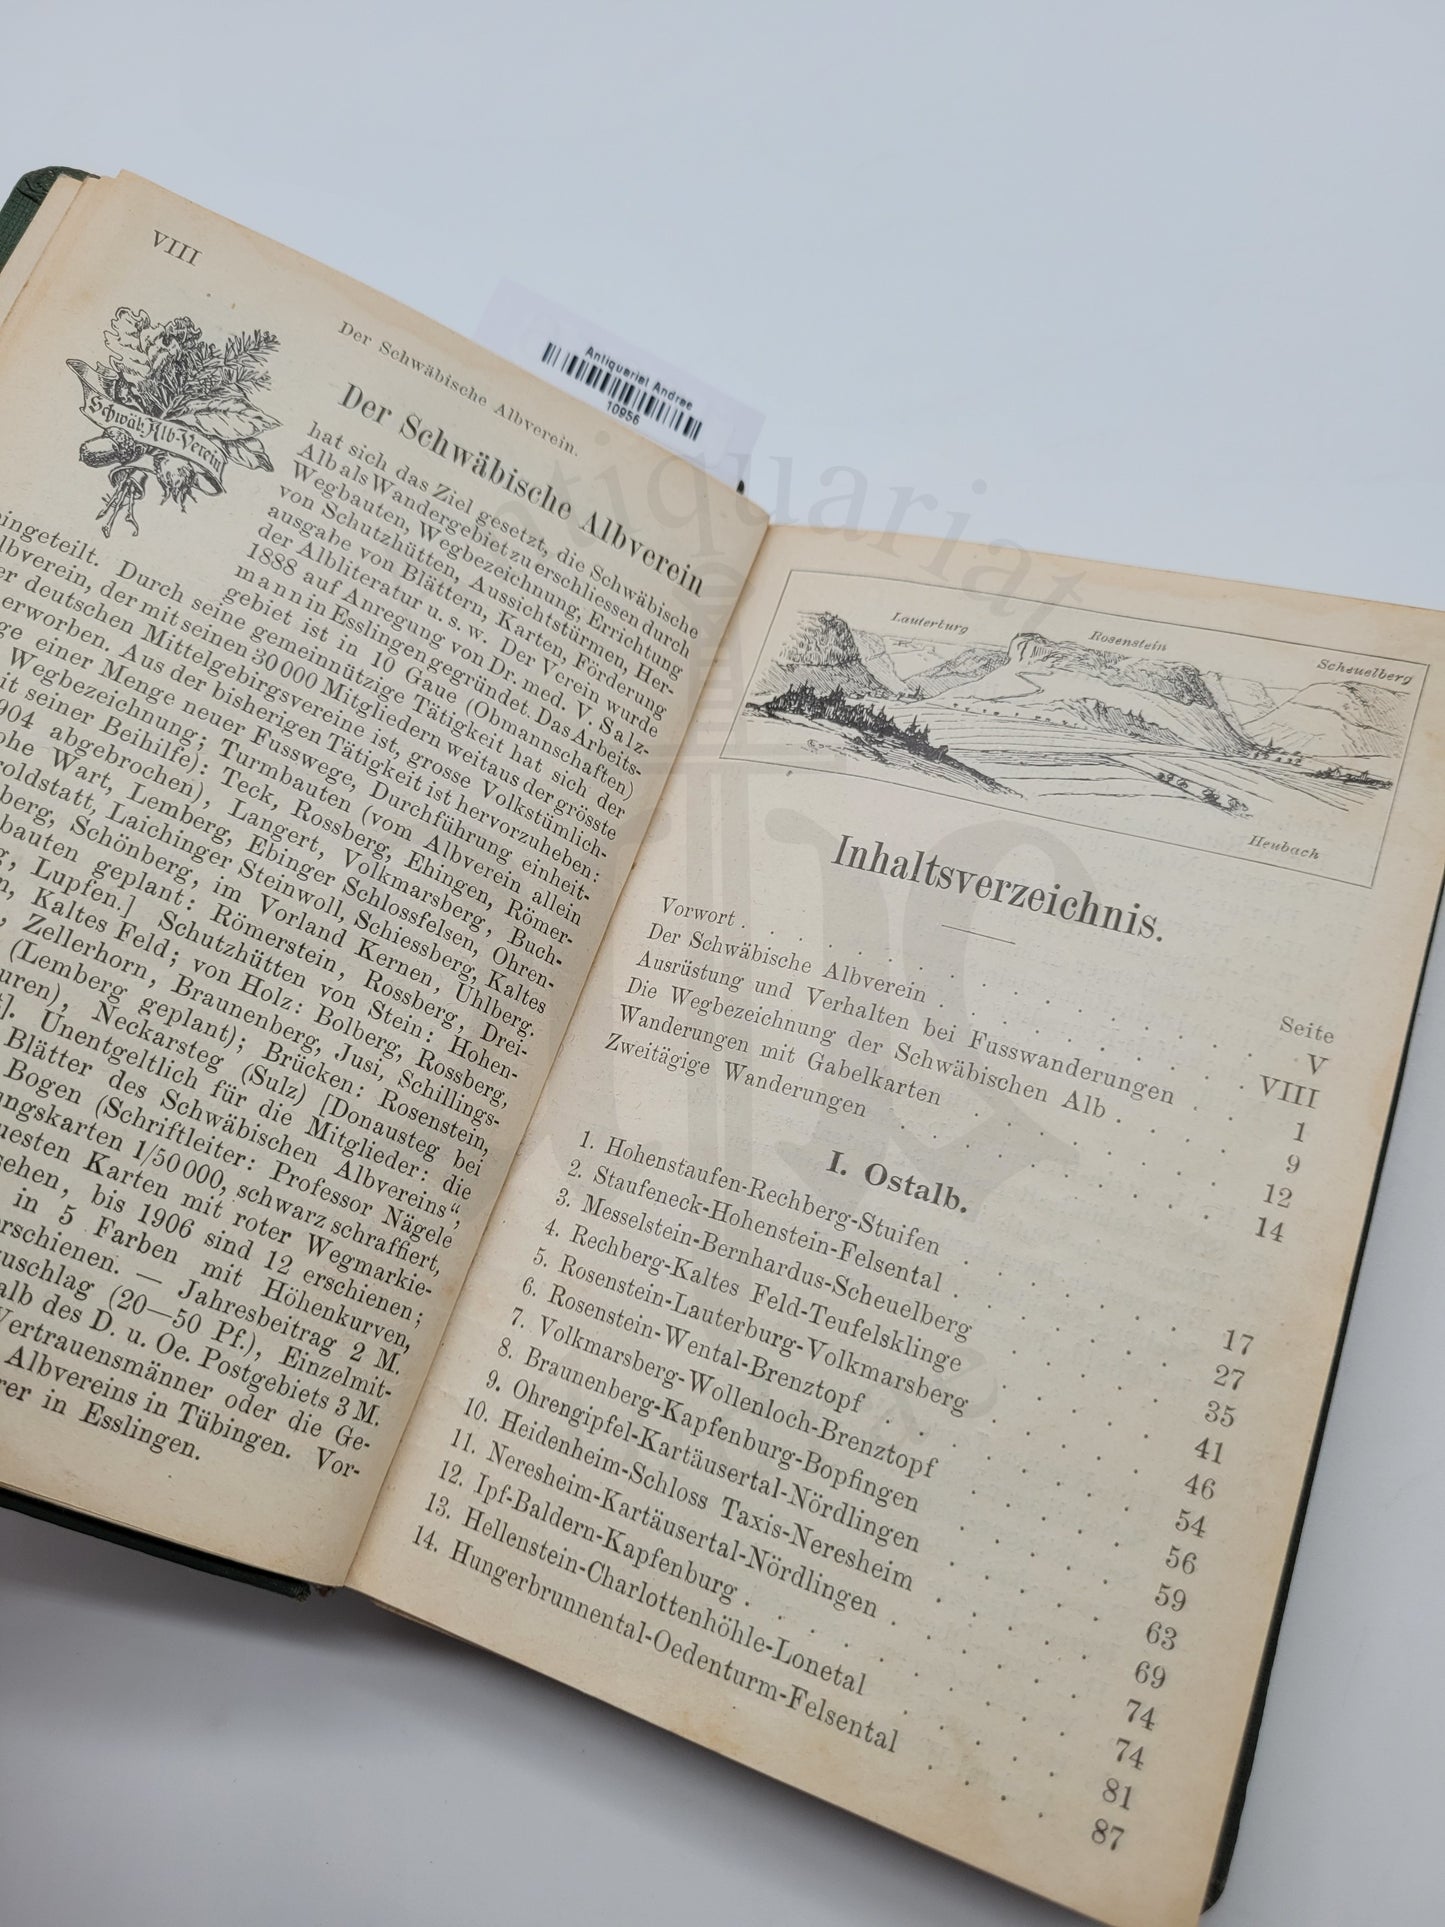 VIII
Der Schwäbische Albverein.
Schwäb. Alb-Verein
Der Schwäbische Albverein
hat sich das Ziel gesetzt, die Schwäbische
Alb als Wandergebiet zu erschliessen durch
Wegbauten, Wegbezeichnung, Errichtung
von Schutzhütten, Aussichtstürmen, Her-
ausgabe von Blättern, Karten, Förderung
der Albliteratur u. s. w. Der Verein wurde
1888 auf Anregung von Dr. med. V. Salz-
mann in Esslingen gegründet. Das Arbeits-
gebiet ist in 10 Gaue (Obmannschaften)
eingeteilt. Durch seine gemeinnützige Tätigkeit hat sich der
Albverein, der mit seinen 30000 Mitgliedern weitaus der grösste
der deutschen Mittelgebirgsvereine ist, grosse Volkstümlich-
erworben. Aus der bisherigen Tätigkeit ist hervorzuheben:
einer Menge neuer Fusswege, Durchführung einheit-
Wegbezeichnung; Turmbauten (vom Albverein allein
seiner Beihilfe): Teck, Rossberg, Ehingen, Römer-
abgebrochen), Langert, Volkmarsberg, Buch-
Wart, Lemberg, Ebinger Schlossfelsen, Ohren-
Laichinger Steinwoll, Schiessberg, Kaltes
Schönberg, im Vorland Kernen, Uhlberg.
geplant: Römerstein, Rossberg, Drei-
Lupfen.] Schutzhütten von Stein: Hohen-
Kaltes Feld; von Holz: Bolberg, Rossberg,
Zellerhorn, Braunenberg, Jusi, Schillings-
(Lemberg geplant); Brücken: Rosenstein,
Neckarsteg (Sulz) [Donausteg bei
Unentgeltlich für die Mitglieder: die
Blätter des Schwäbischen Albvereins“,
Bogen (Schriftleiter: Professor Nägele
1/50000, schwarz schraffiert,
Karten mit roter Wegmarkie-
bis 1906 sind 12 erschienen;
in 5 Farben mit Höhenkurven,
erschienen. — Jahresbeitrag 2 M.
(20—50 Pf.), Einzelmit-
des D. u. Oe. Postgebiets 3 M.
Vertrauensmänner oder die Ge-
Albvereins in Tübingen. Vor-
in Esslingen.
Antiquariat Andree
10956
Lauterburg
Rosenstein
Scheuelberg
Heubach
Inhaltsverzeichnis.
Seite
Vorwort . . . V
Der Schwäbische Albverein . . . VIII
Ausrüstung und Verhalten bei Fusswanderungen . . . 1
Die Wegbezeichnung der Schwäbischen Alb . . . 9
Wanderungen mit Gabelkarten . . . 12
Zweitägige Wanderungen . . . 14
I. Ostalb.
1. Hohenstaufen-Rechberg-Stuifen . . . 17
2. Staufeneck-Hohenstein-Felsental . . . 27
3. Messelstein-Bernhardus-Scheuelberg . . . 35
4. Rechberg-Kaltes Feld-Teufelsklinge . . . 41
5. Rosenstein-Lauterburg-Volkmarsberg . . . 46
6. Rosenstein-Wental-Brenztopf . . . 54
7. Volkmarsberg-Wollenloch-Brenztopf . . . 56
8. Braunenberg-Kapfenburg-Bopfingen . . . 59
9. Ohrengipfel-Kartäusertal-Nördlingen . . . 63
10. Heidenheim-Schloss Taxis-Neresheim . . . 69
11. Neresheim-Kartäusertal-Nördlingen . . . 74
12. Ipf-Baldern-Kapfenburg . . . 74
13. Hellenstein-Charlottenhöhle-Lonetal . . . 81
14. Hungerbrunnental-Oedenturm-Felsental . . . 87